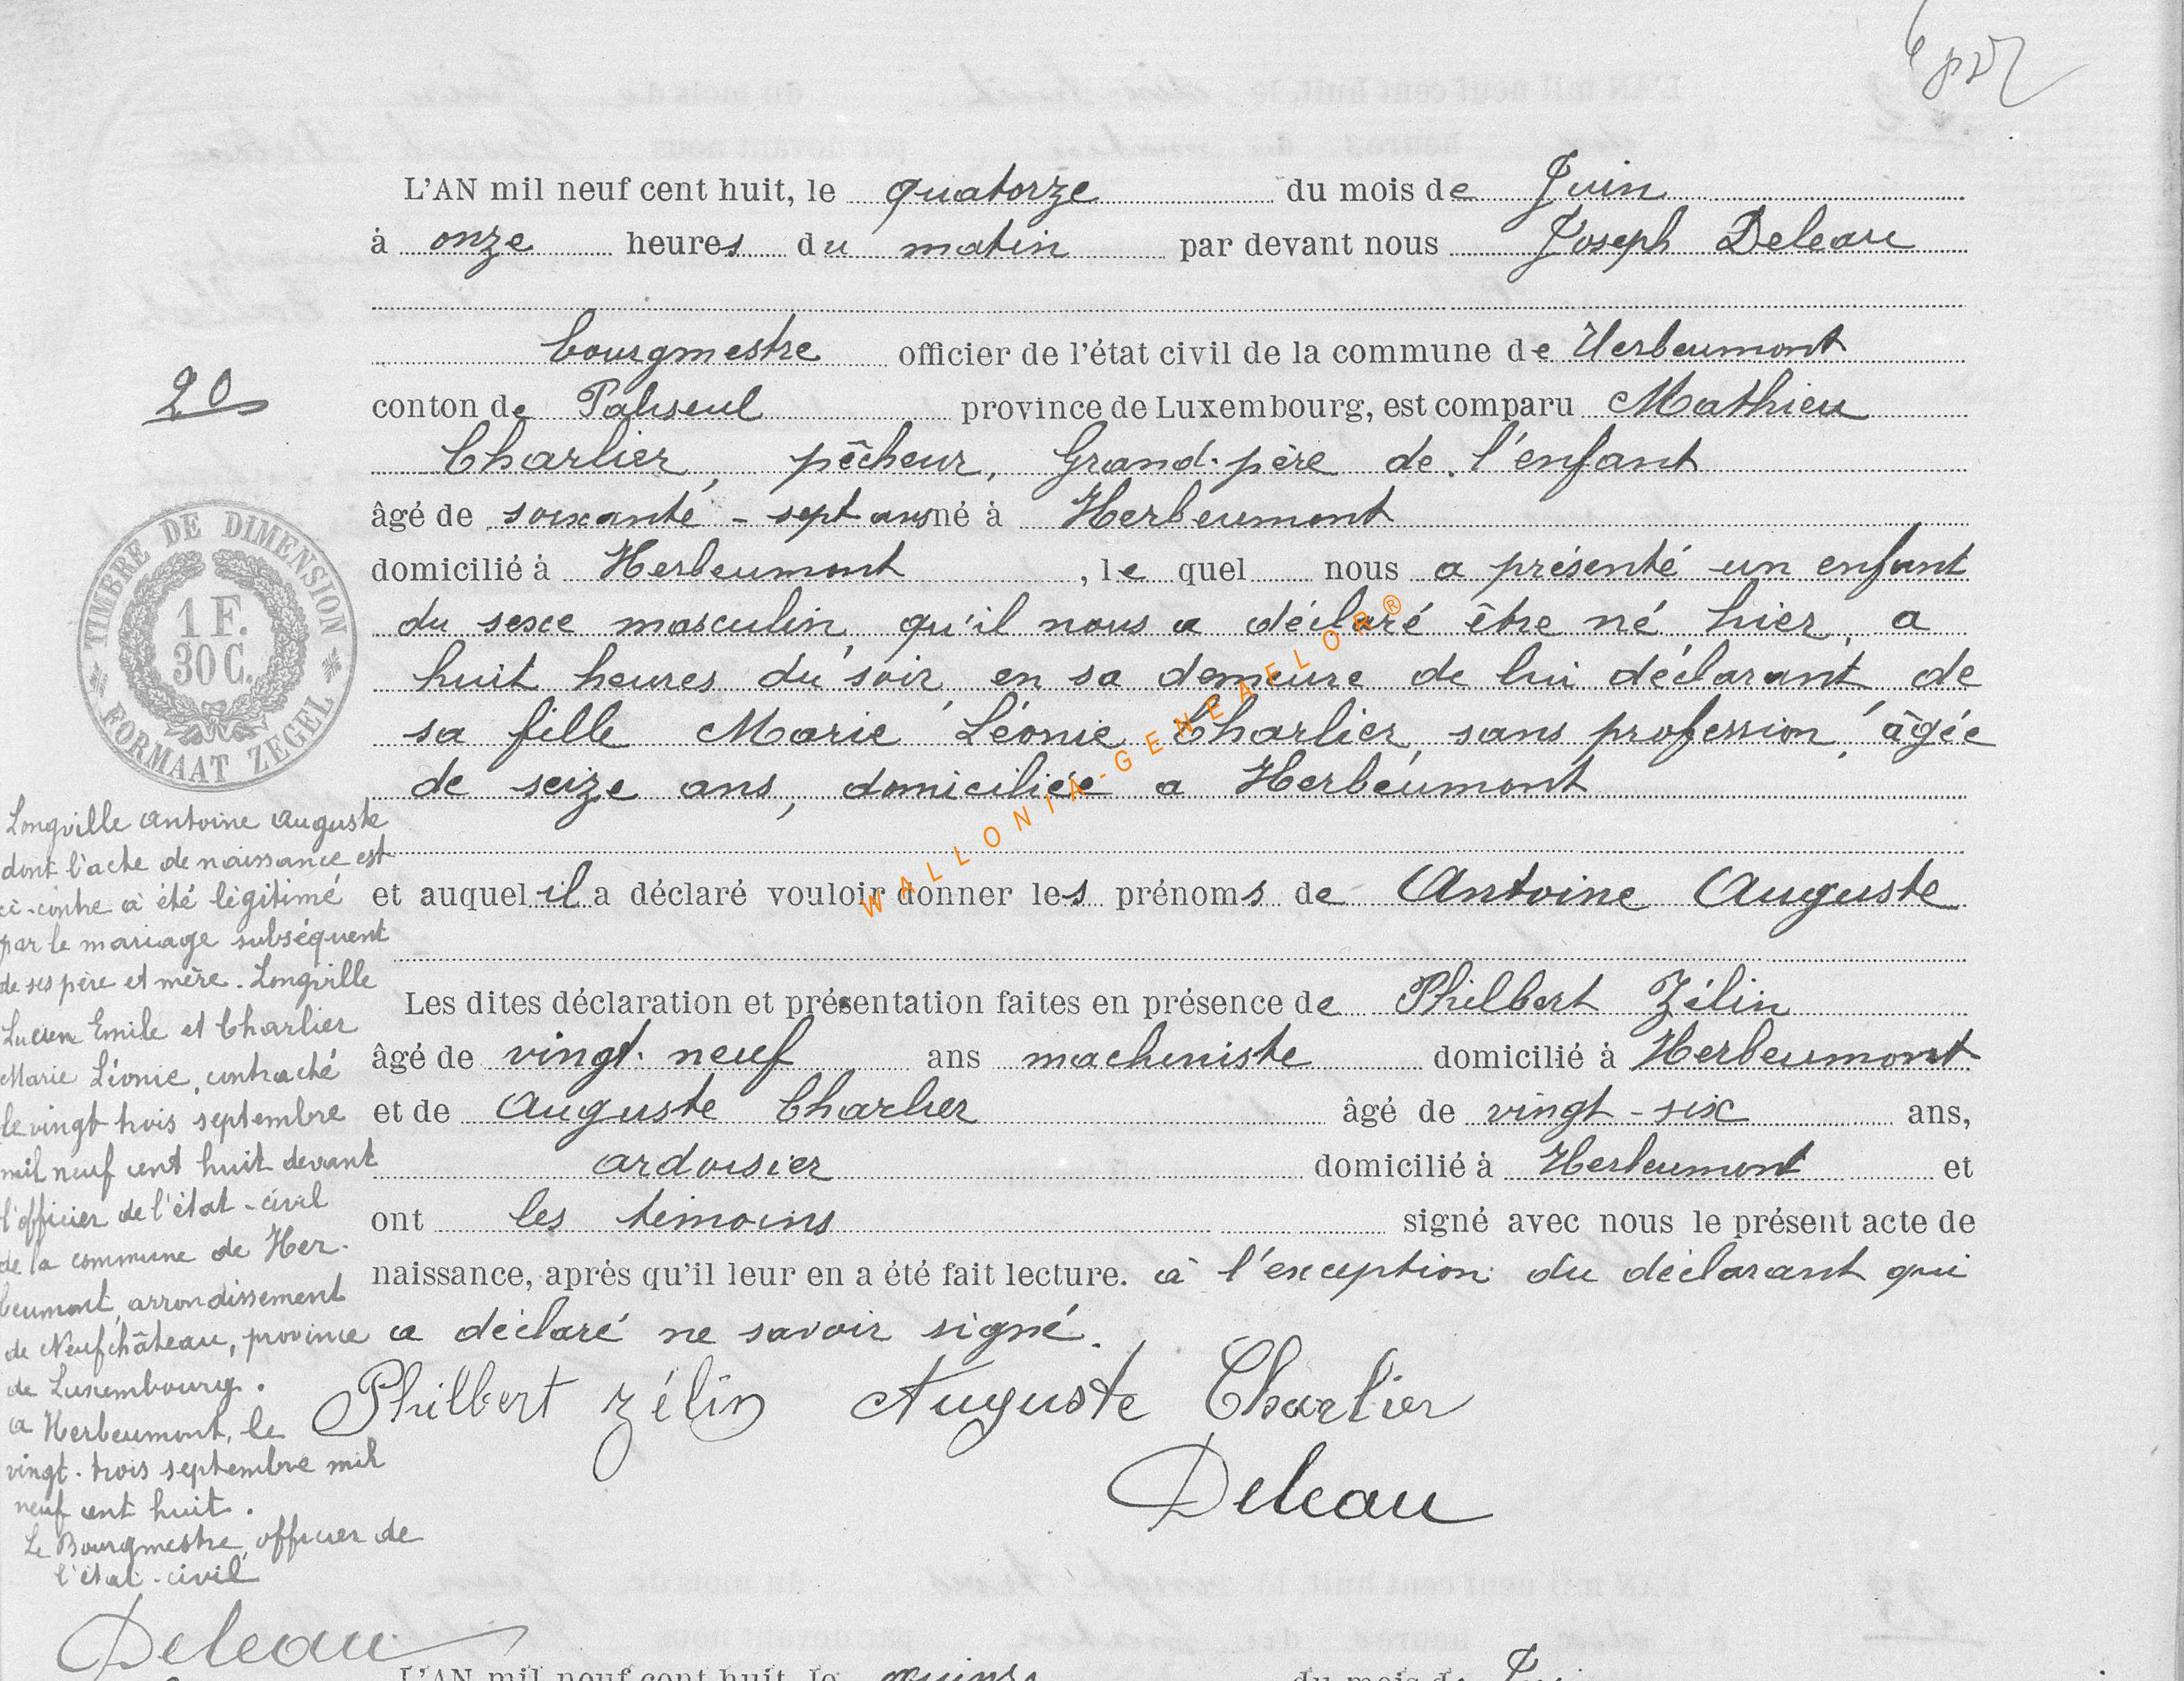 L'AN mil neuf cent huit, le quatorze du mois de Juin
à onze heures du matin par devant nous Joseph Deleau
bourgmestre officier de l'état civil de la commune de Herbeumont
20
conton de Paliseul province de Luxembourg, est comparu Mathieu
Charlier, pêcheur, Grand-père de l'enfant
âgé de soixante-sept ans né à Herbeumont
domicilié à Herbeumont, le quel nous a présenté un enfant
du sexe masculin, qu'il nous a déclaré être né hier, a
huit heures du soir, en sa demeure de lui déclarant, de
sa fille Marie Léonie Charlier, sans profession, âgée
de seize ans, domiciliée a Herbeumont
et auquel il a déclaré vouloir donner les prénoms de Antoine Auguste
Les dites déclaration et présentation faites en présence de Philbert Zélin
âgé de vingt-neuf ans machiniste domicilié à Herbeumont
et de Auguste Charlier âgé de vingt-six ans,
ardoisier domicilié à Herbeumont et
ont les témoins signé avec nous le présent acte de
naissance, après qu'il leur en a été fait lecture. à l'exception du déclarant qui
a déclaré ne savoir signé.
Philbert Zélin Auguste Charlier
Deleau
TIMBRE DE DIMENSION
1 F.
30 C.
FORMAAT ZEGEL
Longville Antoine Auguste
dont l'acte de naissance est
ci-contre a été légitimé
par le mariage subséquent
de ses père et mère. Longville
Lucien Emile et Charlier
Marie Léonie, contracté
le vingt trois septembre
mil neuf cent huit devant
l'officier de l'état-civil
de la commune de Her-
beumont, arrondissement
de Neufchâteau, province
de Luxembourg.
a Herbeumont, le
vingt-trois septembre mil
neuf cent huit.
Le Bourgmestre, officier de
l'état-civil
Deleau
WALLONIA-GENEAFLOR®
L'AN mil neuf cent huit, le quinze du mois de Jui